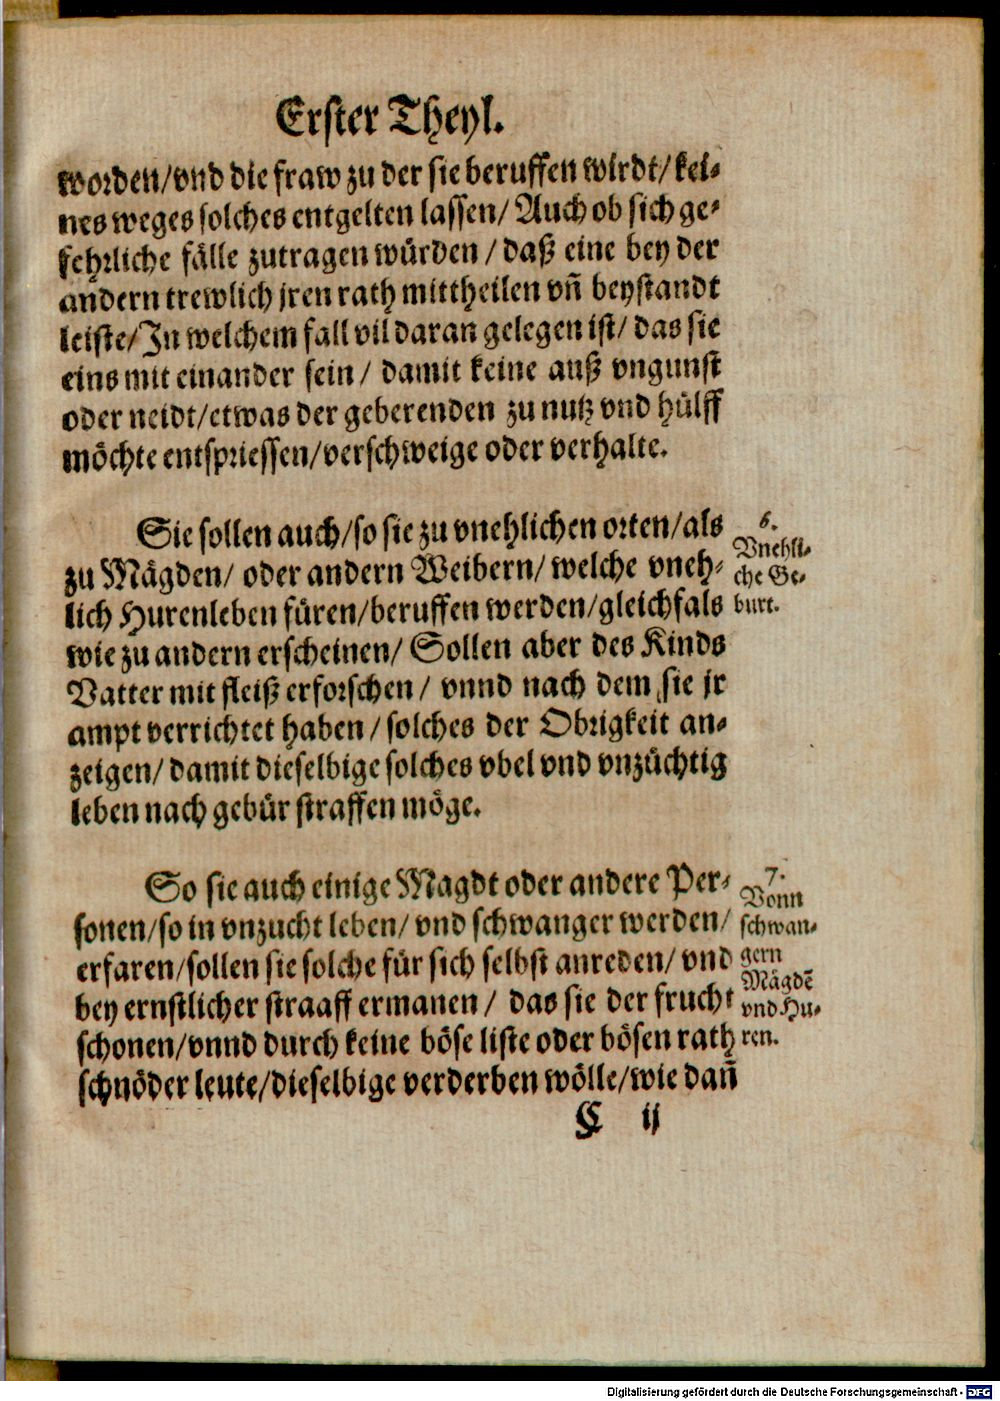 Erster Theyl.
worden/vnd die fraw zu der sie beruffen wirdt/kei-
nes weges solches entgelten lassen/Auch ob sich ge-
fehrliche fälle zutragen würden/daß eine bey der
andern trewlich jren rath mittheilen vñ beystandt
leiste/In welchem fall vil daran gelegen ist/das sie
eins mit einander sein/damit keine auß vngunst
oder neidt/etwas der geberenden zu nutz vnd hülff
möchte entspriessen/verschweige oder verhalte.
Sie sollen auch/so sie zu vnehlichen orten/als
zu Mägden/oder andern Weibern/welche vneh-
lich Hurenleben füren/beruffen werden/gleichfals
wie zu andern erscheinen/Sollen aber des Kinds
Vatter mit fleiß erforschen/vnnd nach dem sie jr
ampt verrichtet haben/solches der Obrigkeit an-
zeigen/damit dieselbige solches vbel vnd vnzüchtig
leben nach gebür straffen möge.
6.
Vnehli-
che Ge-
burt.
So sie auch einige Magdt oder andere Per-
sonen/so in vnzucht leben/vnd schwanger werden/
erfaren/sollen sie solche für sich selbst anreden/vnd
bey ernstlicher straaff ermanen/das sie der frucht
schonen/vnnd durch keine böse liste oder bösen rath
schnöder leute/dieselbige verderben wölle/wie dañ
7.
Vonn
schwan-
gern
Mägdẽ
vnd Hu-
ren.
C ij
Digitalisierung gefördert durch die Deutsche Forschungsgemeinschaft - DFG